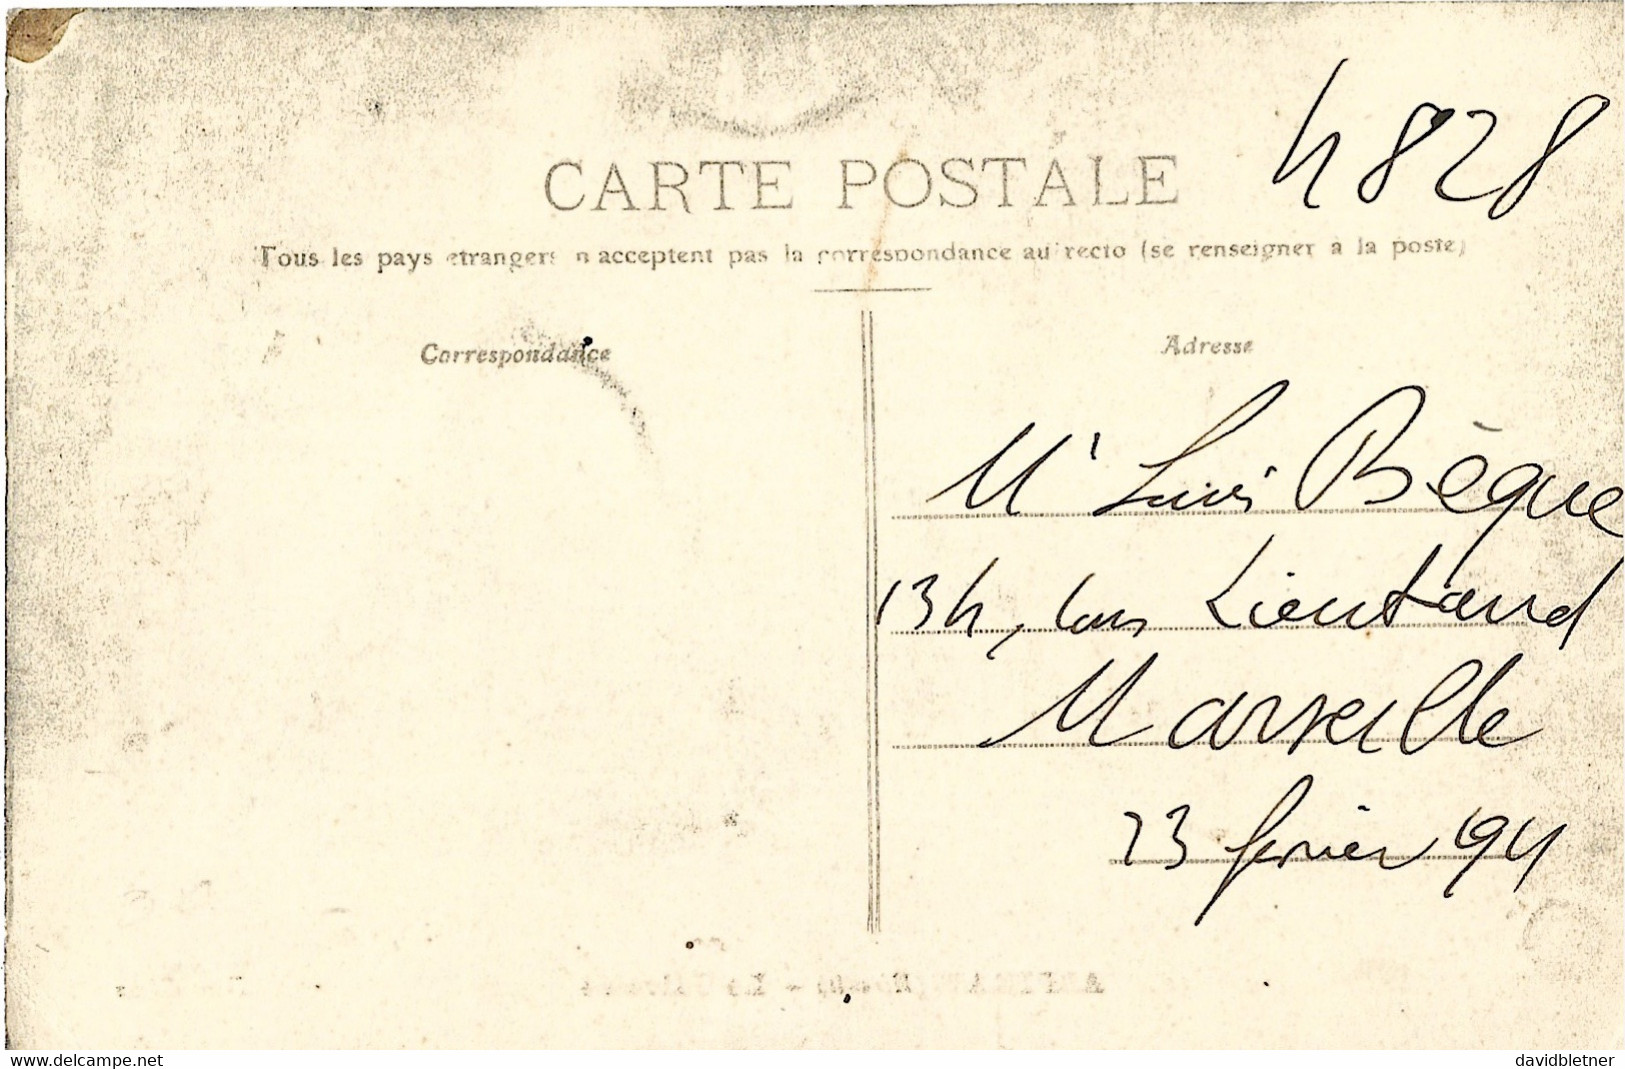 4828
CARTE POSTALE
Tous les pays etrangers n'acceptent pas la correspondance au recto (se renseigner à la poste)
Correspondance
Adresse
Mr Louis Bègue
134, Cours Lieutaud
Marseille
23 février 1941
www.delcampe.net
davidbletner